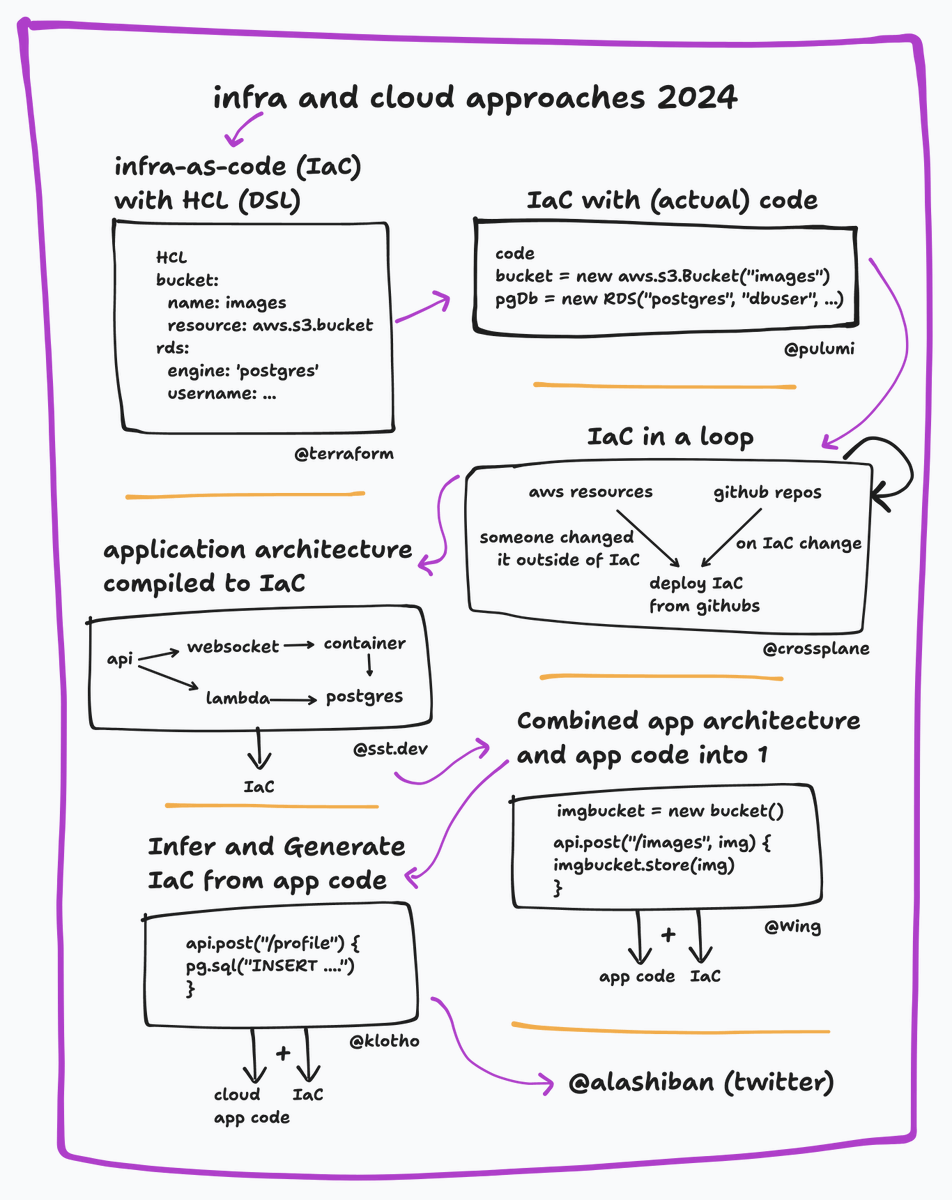 infra and cloud approaches 2024
infra-as-code (IaC)
with HCL (DSL)
HCL
bucket:
name: images
resource: aws.s3.bucket
rds:
engine: 'postgres'
username: ...
@terraform
IaC with (actual) code
code
bucket = new aws.s3.Bucket("images")
pgDb = new RDS("postgres", "dbuser", ...)
@pulumi
IaC in a loop
aws resources
github repos
someone changed
it outside of IaC
on IaC change
deploy IaC
from githubs
@crossplane
application architecture
compiled to IaC
api
websocket
container
lambda
postgres
@sst.dev
IaC
Combined app architecture
and app code into 1
imgbucket = new bucket()
api.post("/images", img) {
imgbucket.store(img)
}
@Wing
+
app code
IaC
Infer and Generate
IaC from app code
api.post("/profile") {
pg.sql("INSERT ....")
}
@klotho
+
cloud
app code
IaC
@alashiban (twitter)